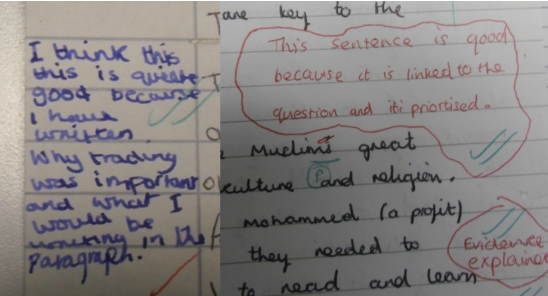 I think this
this is quiete
good because
I have
written.
Why trading
was important
and what I
would be
writing in the
Paragraph.
key to the
This sentence is good
because it is linked to the
question and it's priortised.
Muslims great
culture and religion.
mohammed (a profit)
they needed to
to read and learn
Evidence
explained